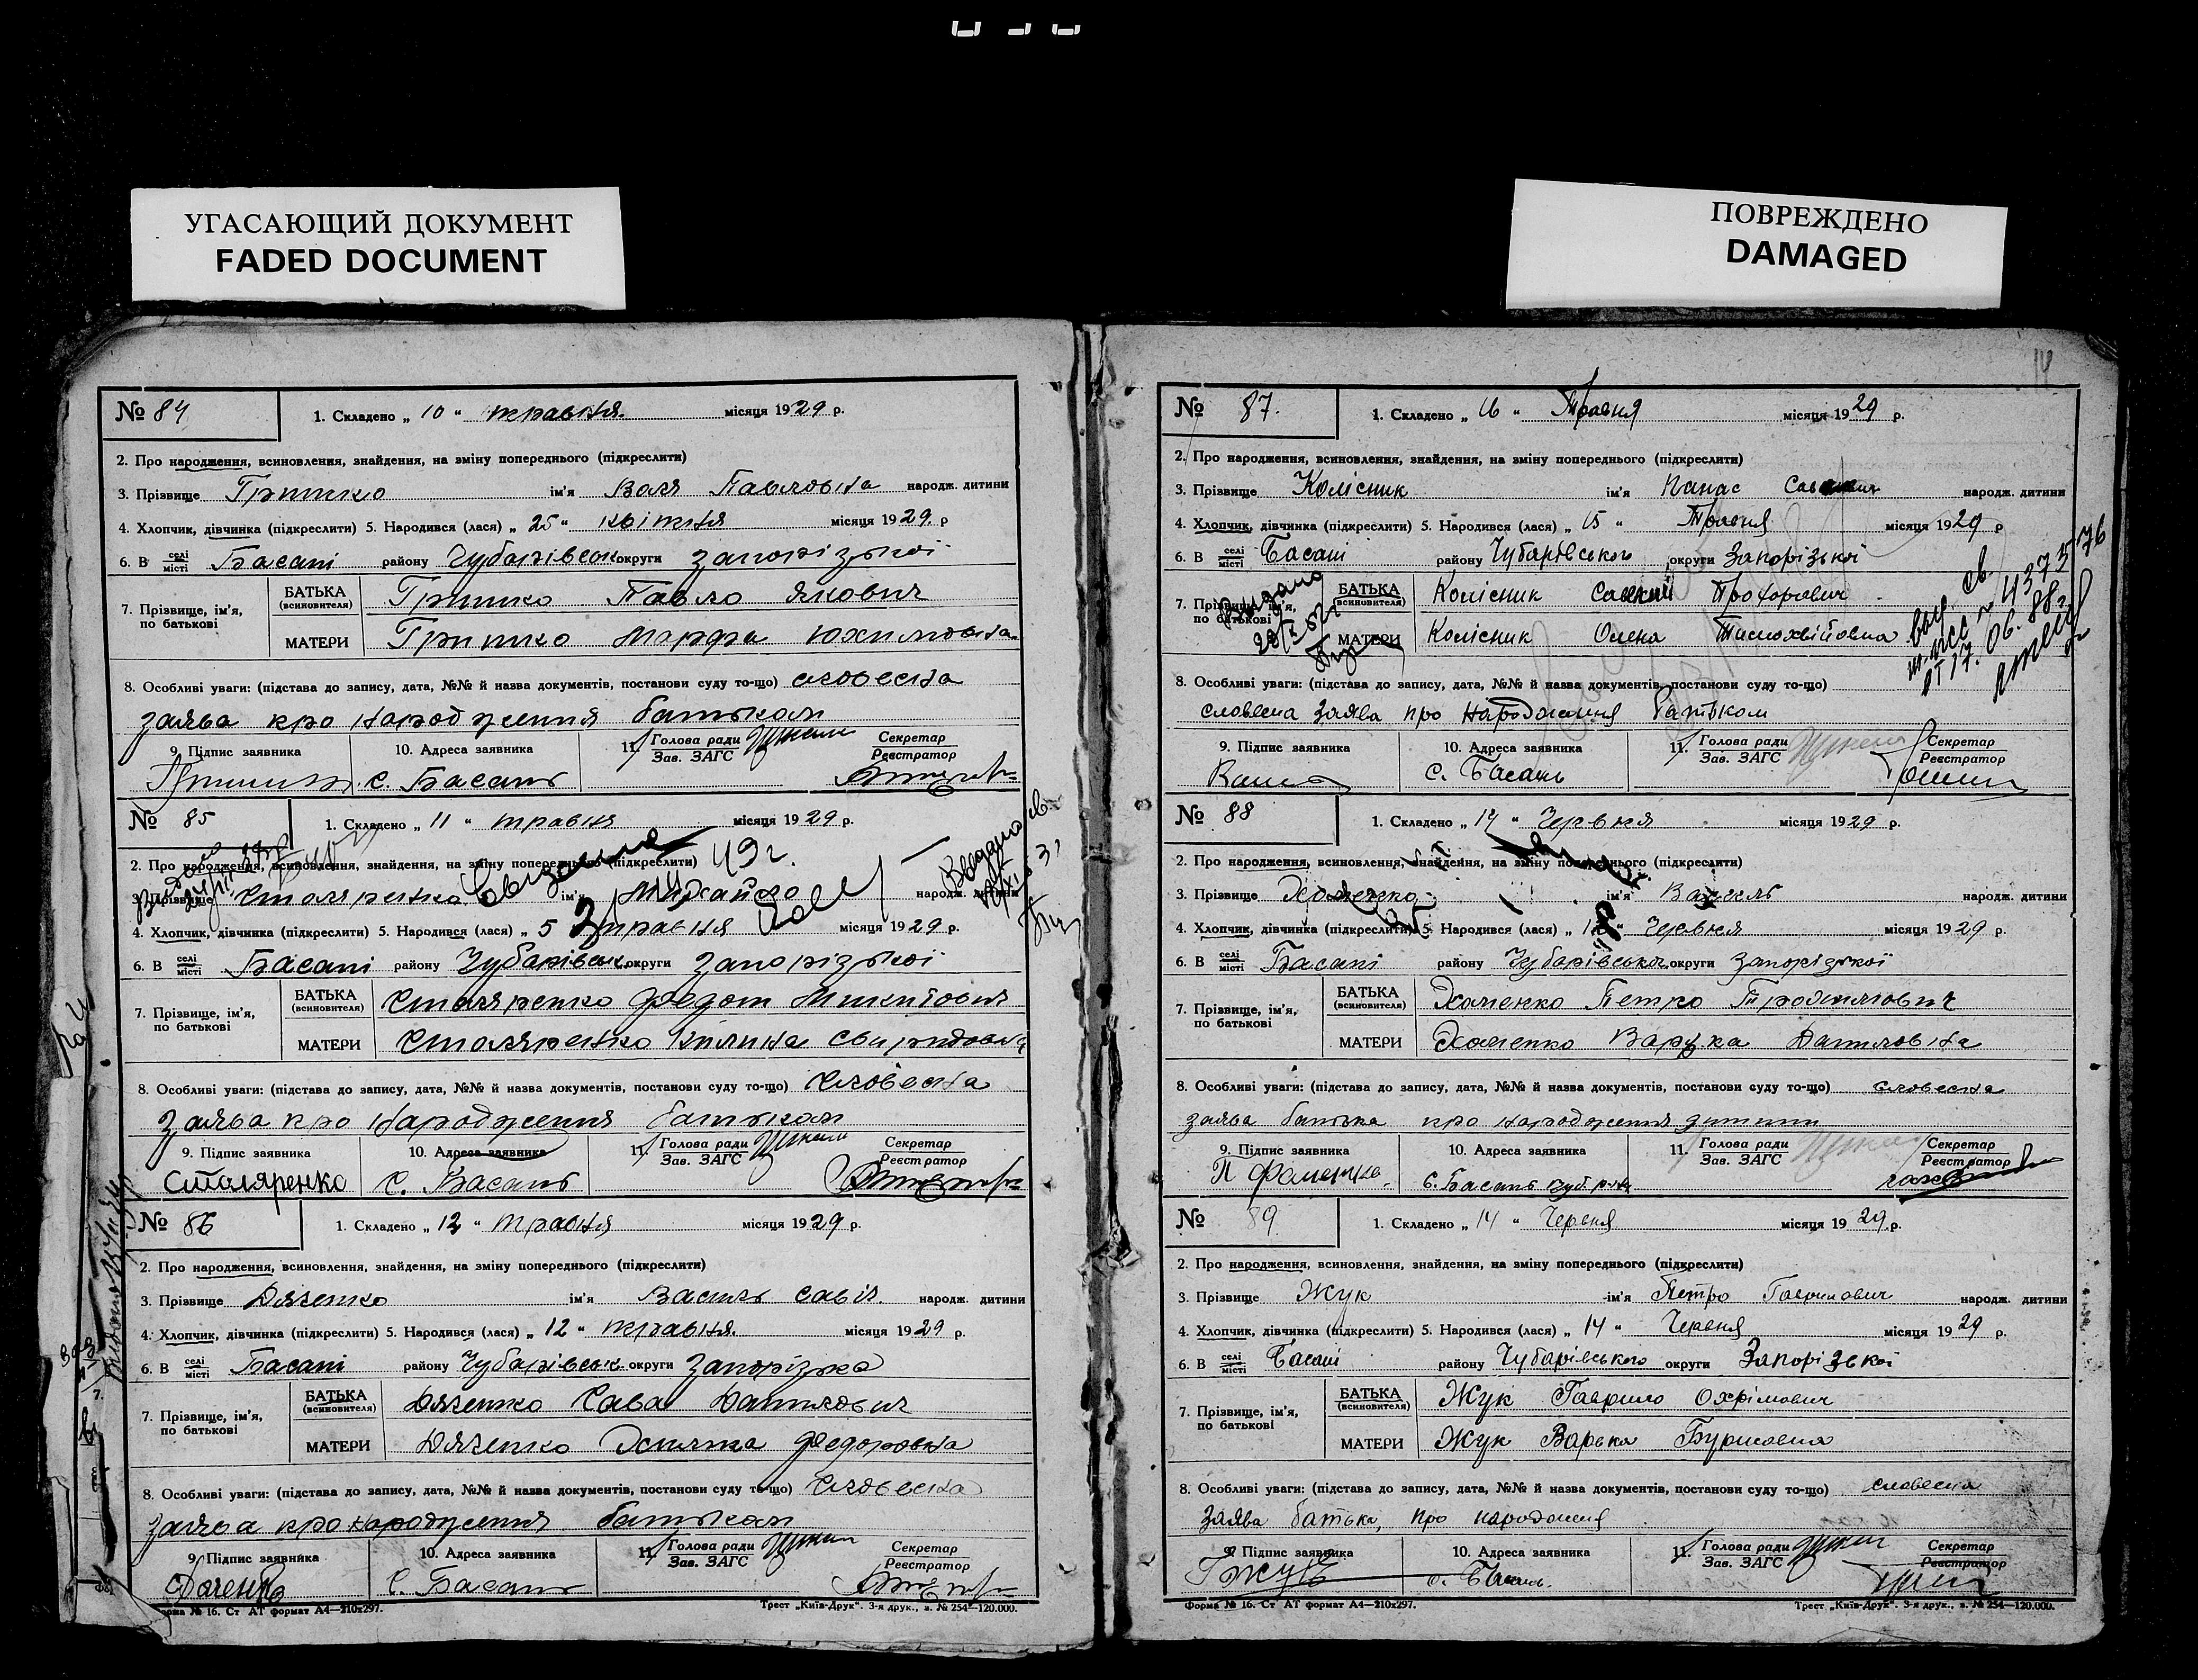 УГАСАЮЩИЙ ДОКУМЕНТ
FADED DOCUMENT
ПОВРЕЖДЕНО
DAMAGED
№ 84 1. Складено „ 10 “ травня місяця 1929 р.
2. Про народження, всиновлення, знайдення, на зміну попереднього (підкреслити)
3. Прізвище Гришко ім'я Валя Павловна народж. дитини
4. Хлопчик, дівчинка (підкреслити) 5. Народився (лася) „ 25 “ квітня місяця 1929. р
6. В селі місті Басані району Чубарівськ округи запорізької
7. Прізвище, ім'я, по батькові БАТЬКА (всиновителя) Гришко Павло Якович
МАТЕРИ Гришко Марфа Юхимовна
8. Особливі уваги: (підстава до запису, дата, №№ й назва документів, постанови суду то-що) словесна
заява про народження батьком
9. Підпис заявника 10. Адреса заявника 11. Голова ради Зав. ЗАГС Секретар Реєстратор
с. Басань
№ 85 1. Складено „ 11 “ травня місяця 1929 р.
2. Про народження, всиновлення, знайдення, на зміну попереднього (підкреслити) 49 г.
3. Прізвище Столяренко ім'я Михайло народж. дитини
4. Хлопчик, дівчинка (підкреслити) 5. Народився (лася) „ 5 травня місяця 1929 р.
6. В селі місті Басані району Чубарівськ округи запорізької
7. Прізвище, ім'я, по батькові БАТЬКА (всиновителя) Столяренко Федот Микитович
МАТЕРИ Столяренко Килина Свиридовна
8. Особливі уваги: (підстава до запису, дата, №№ й назва документів, постанови суду то-що) словесна
заява про народження батьком
9. Підпис заявника 10. Адреса заявника 11. Голова ради Зав. ЗАГС Секретар Реєстратор
Столяренко с. Басань
№ 86 1. Складено „ 12 “ травня місяця 1929 р.
2. Про народження, всиновлення, знайдення, на зміну попереднього (підкреслити)
3. Прізвище Дяченко ім'я Василь Савів. народж. дитини
4. Хлопчик, дівчинка (підкреслити) 5. Народився (лася) „ 12 “ травня. місяця 1929 р.
6. В селі місті Басані району Чубарівськ округи запорізька
7. Прізвище, ім'я, по батькові БАТЬКА (всиновителя) Дяченко Сава Данилович
МАТЕРИ Дяченко Федоровна
8. Особливі уваги: (підстава до запису, дата, №№ й назва документів, постанови суду то-що) словесна
заява про народження батьком
9. Підпис заявника 10. Адреса заявника 11. Голова ради Зав. ЗАГС Секретар Реєстратор
Дяченко с. Басань
Форма № 16. Ст АТ формат А4—210х297. Трест „Київ-Друк“. 3-я друк., з. № 254—120.000.
№ 87. 1. Складено „ 16 “ Травня місяця 1929 р.
2. Про народження, всиновлення, знайдення, на зміну попереднього (підкреслити)
3. Прізвище Колісник ім'я Панас народж. дитини
4. Хлопчик, дівчинка (підкреслити) 5. Народився (лася) „ 15 “ Травня місяця 1929 р
6. В селі місті Басані району Чубарівського округи Запорізької
7. Прізвище, ім'я, по батькові БАТЬКА (всиновителя) Колісник Прохорович
МАТЕРИ Колісник Олена Тимохвійовна
8. Особливі уваги: (підстава до запису, дата, №№ й назва документів, постанови суду то-що)
словесна заява про народження батьком
9. Підпис заявника 10. Адреса заявника 11. Голова ради Зав. ЗАГС Секретар Реєстратор
с. Басань
№ 88 1. Складено „ 14 “ Червня місяця 1929 р.
2. Про народження, всиновлення, знайдення, на зміну попереднього (підкреслити)
3. Прізвище ім'я Василь народж. дитини
4. Хлопчик, дівчинка (підкреслити) 5. Народився (лася) Червня місяця 1929 р.
6. В селі місті Басані району Чубарівська округи запоріжкої
7. Прізвище, ім'я, по батькові БАТЬКА (всиновителя) Петро Трохимович
МАТЕРИ Варька Даниловна
8. Особливі уваги: (підстава до запису, дата, №№ й назва документів, постанови суду то-що) словесна
заява батька про народження дитини
9. Підпис заявника 10. Адреса заявника 11. Голова ради Зав. ЗАГС Секретар Реєстратор
с. Басань
№ 89 1. Складено „ 14 “ Червня місяця 1929 р.
2. Про народження, всиновлення, знайдення, на зміну попереднього (підкреслити)
3. Прізвище Жук ім'я Петро Гаврилович народж. дитини
4. Хлопчик, дівчинка (підкреслити) 5. Народився (лася) „ 14 “ Червня місяця 1929 р.
6. В селі місті Басані району Чубарівського округи Запорізької
7. Прізвище, ім'я, по батькові БАТЬКА (всиновителя) Жук Гаврило Охрімович
МАТЕРИ Жук Варька Бурисовна
8. Особливі уваги: (підстава до запису, дата, №№ й назва документів, постанови суду то-що) словесна
заява батька, про народження
9. Підпис заявника 10. Адреса заявника 11. Голова ради Зав. ЗАГС Секретар Реєстратор
Г Жук с. Басань.
Форма № 16. Ст АТ формат А4—210х297. Трест „Київ-Друк“. 3-я друк., з. № 254—120.000.